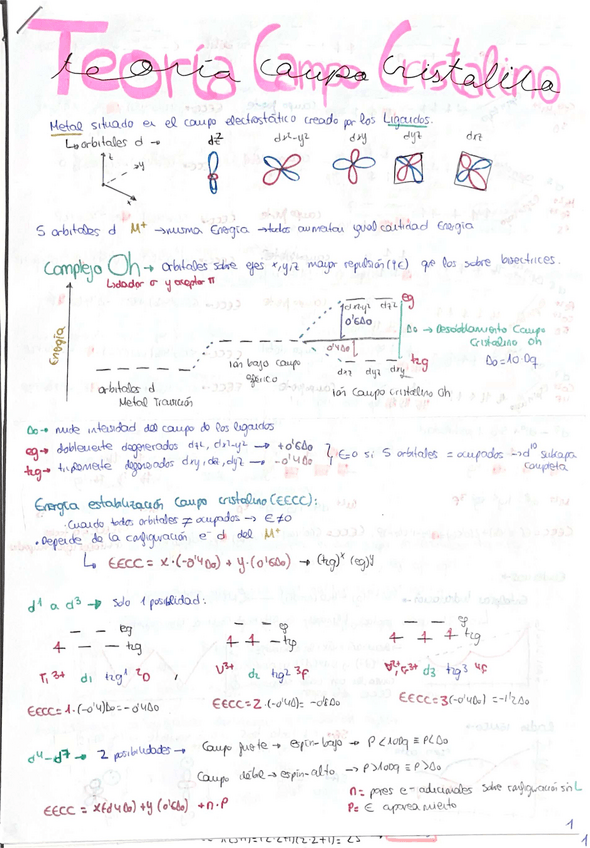 Teoría Campo Cristalino
teoría campo Cristalino
Metal situado en el campo electrostático creado por los Ligandos.
↳ orbitales d → dz² dx²-y² dxy dyz dxz
z
y
x
5 orbitales d M⁺ → misma Energía → todos aumentan igual cantidad Energía
Complejo Oh → orbitales sobre ejes x,y,z mayor repulsión (↑E) que los sobre bisectrices.
L dador σ y aceptor π
Energía
dx²-y² dz² eg
0'6Δo
Δo → Desdoblamiento Campo
Cristalino Oh
0'4Δo
t2g
Δo = 10·Dq
dxz dyz dxy
orbitales d
Metal Transición
Ión bajo campo
esférico
Ión Campo Cristalino Oh
Δo → mide intensidad del campo de los ligandos
eg → doblemente degenerados dz², dx²-y² → +0'6Δo
t2g → triplemente degenerados dxy, dxz, dyz → -0'4Δo
E=0 si 5 orbitales = ocupados → d¹⁰ subcapa
completa
Energía estabilización Campo cristalino (EECC):
· Cuando todos orbitales ≠ ocupados → E≠0
· Depende de la configuración e⁻ d del M⁺
↳ EECC = x·(-0'4Δo) + y·(0'6Δo) → (t2g)ˣ (eg)ʸ
d¹ a d³ → Solo 1 posibilidad:
eg eg eg
t2g t2g t2g
Ti³⁺ d1 t2g¹ ²D , V³⁺ d2 t2g² ³F V²⁺, Cr³⁺ d3 t2g³ ⁴F
EECC = 1·(-0'4)Δo = -0'4Δo EECC = 2·(-0'4Δ) = -0'8Δo EECC = 3(-0'4Δo) = -1'2Δo
d⁴-d⁷ → 2 posibilidades → Campo fuerte → espín-bajo → P<10Dq ≡ P<Δo
Campo débil → espín-alto → P>10Dq ≡ P>Δo
n = pares e⁻ adicionales sobre configuración sin L
EECC = x(-0'4Δo) + y(0'6Δo) + n·P
P = E apareamiento
1
1